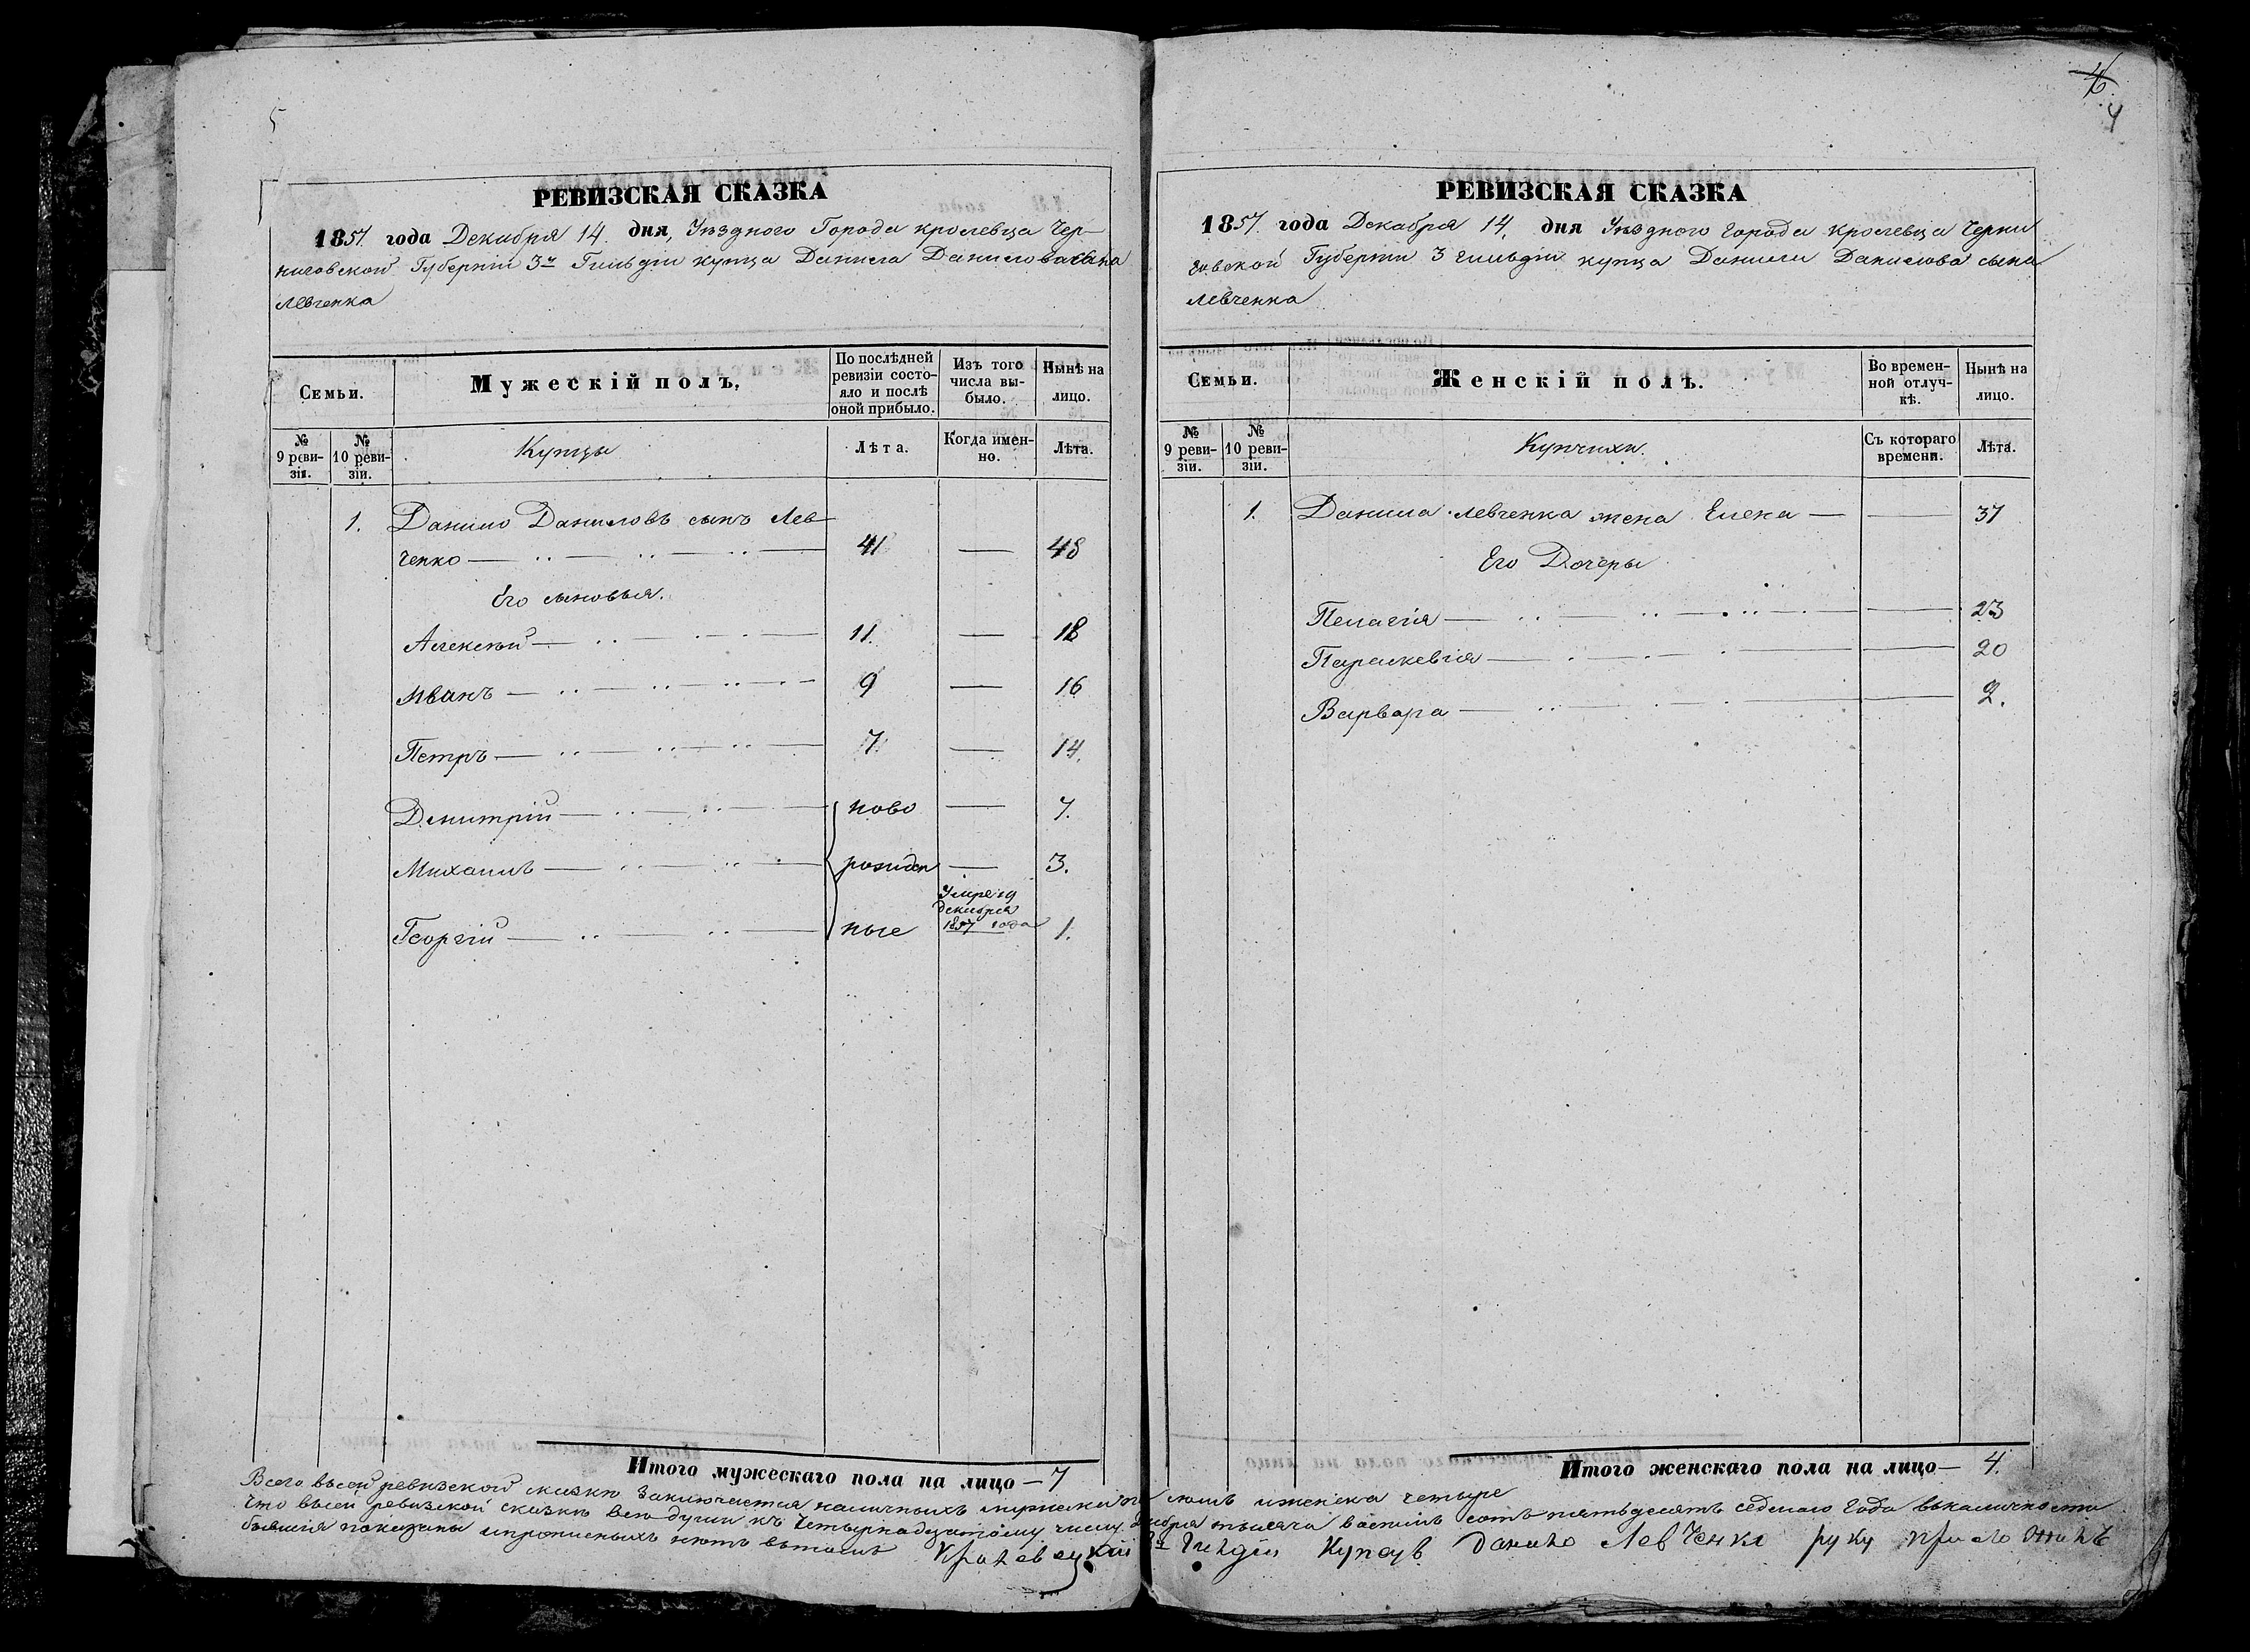 5
РЕВИЗСКАЯ СКАЗКА
1857. года Декабря 14. дня, Уѣзднаго Города Кролевца Чер-
ниговской Губерніи 3й Гильдіи купца Данила Данилова сына
Левченка
Семьи.
Мужескій полъ,
По послѣдней ревизіи состо-яло и послѣ оной прибыло.
Изъ того числа вы-было.
Нынѣ на лицо.
№ 9 реви-зіи.
№ 10 реви-зіи.
Купцы
Лѣта.
Когда имен-но.
Лѣта.
1. Данило Даниловъ сынъ Лев-
ченко 41 — 48
Его сыновья.
Алексѣй 11. — 18
Иванъ 9 — 16
Петръ 7 — 14.
Дмитрій ново — 7.
Михаилъ рожден — 3.
Умре 19
декабря
Георгій ные 1857 года 1.
Итого мужескаго пола на лицо — 7
4
РЕВИЗСКАЯ СКАЗКА
1857. года Декабря 14. дня Уѣзднаго города Кролевца Черни
говской Губерніи 3 гильдіи купца Данила Данилова сына
Левченка
Семьи.
Женскій полъ.
Во времен-ной отлуч-кѣ.
Нынѣ на лицо.
№ 9 реви-зіи.
№ 10 реви-зіи.
Купчихи.
Съ котораго времени.
Лѣта.
1. Данила Левченка жена Елена — 37
Его Дочеры
Пелагія — 23
Параскевія — 20
Варвара — 2.
Итого женскаго пола на лицо — 4.
Всего въ сей ревизской сказкѣ заключается наличныхъ мужеска семь и женска четыре
Что въ сей ревизской сказкѣ всѣ души къ четырнадцатому числу декабря тысяча восемь сотъ пятьдесятъ седмаго года въ наличности
бывшія показаны и прописныхъ нѣтъ въ томъ Кролевецкій 3й Гилдіи Купецъ Данило Левченко руку приложилъ